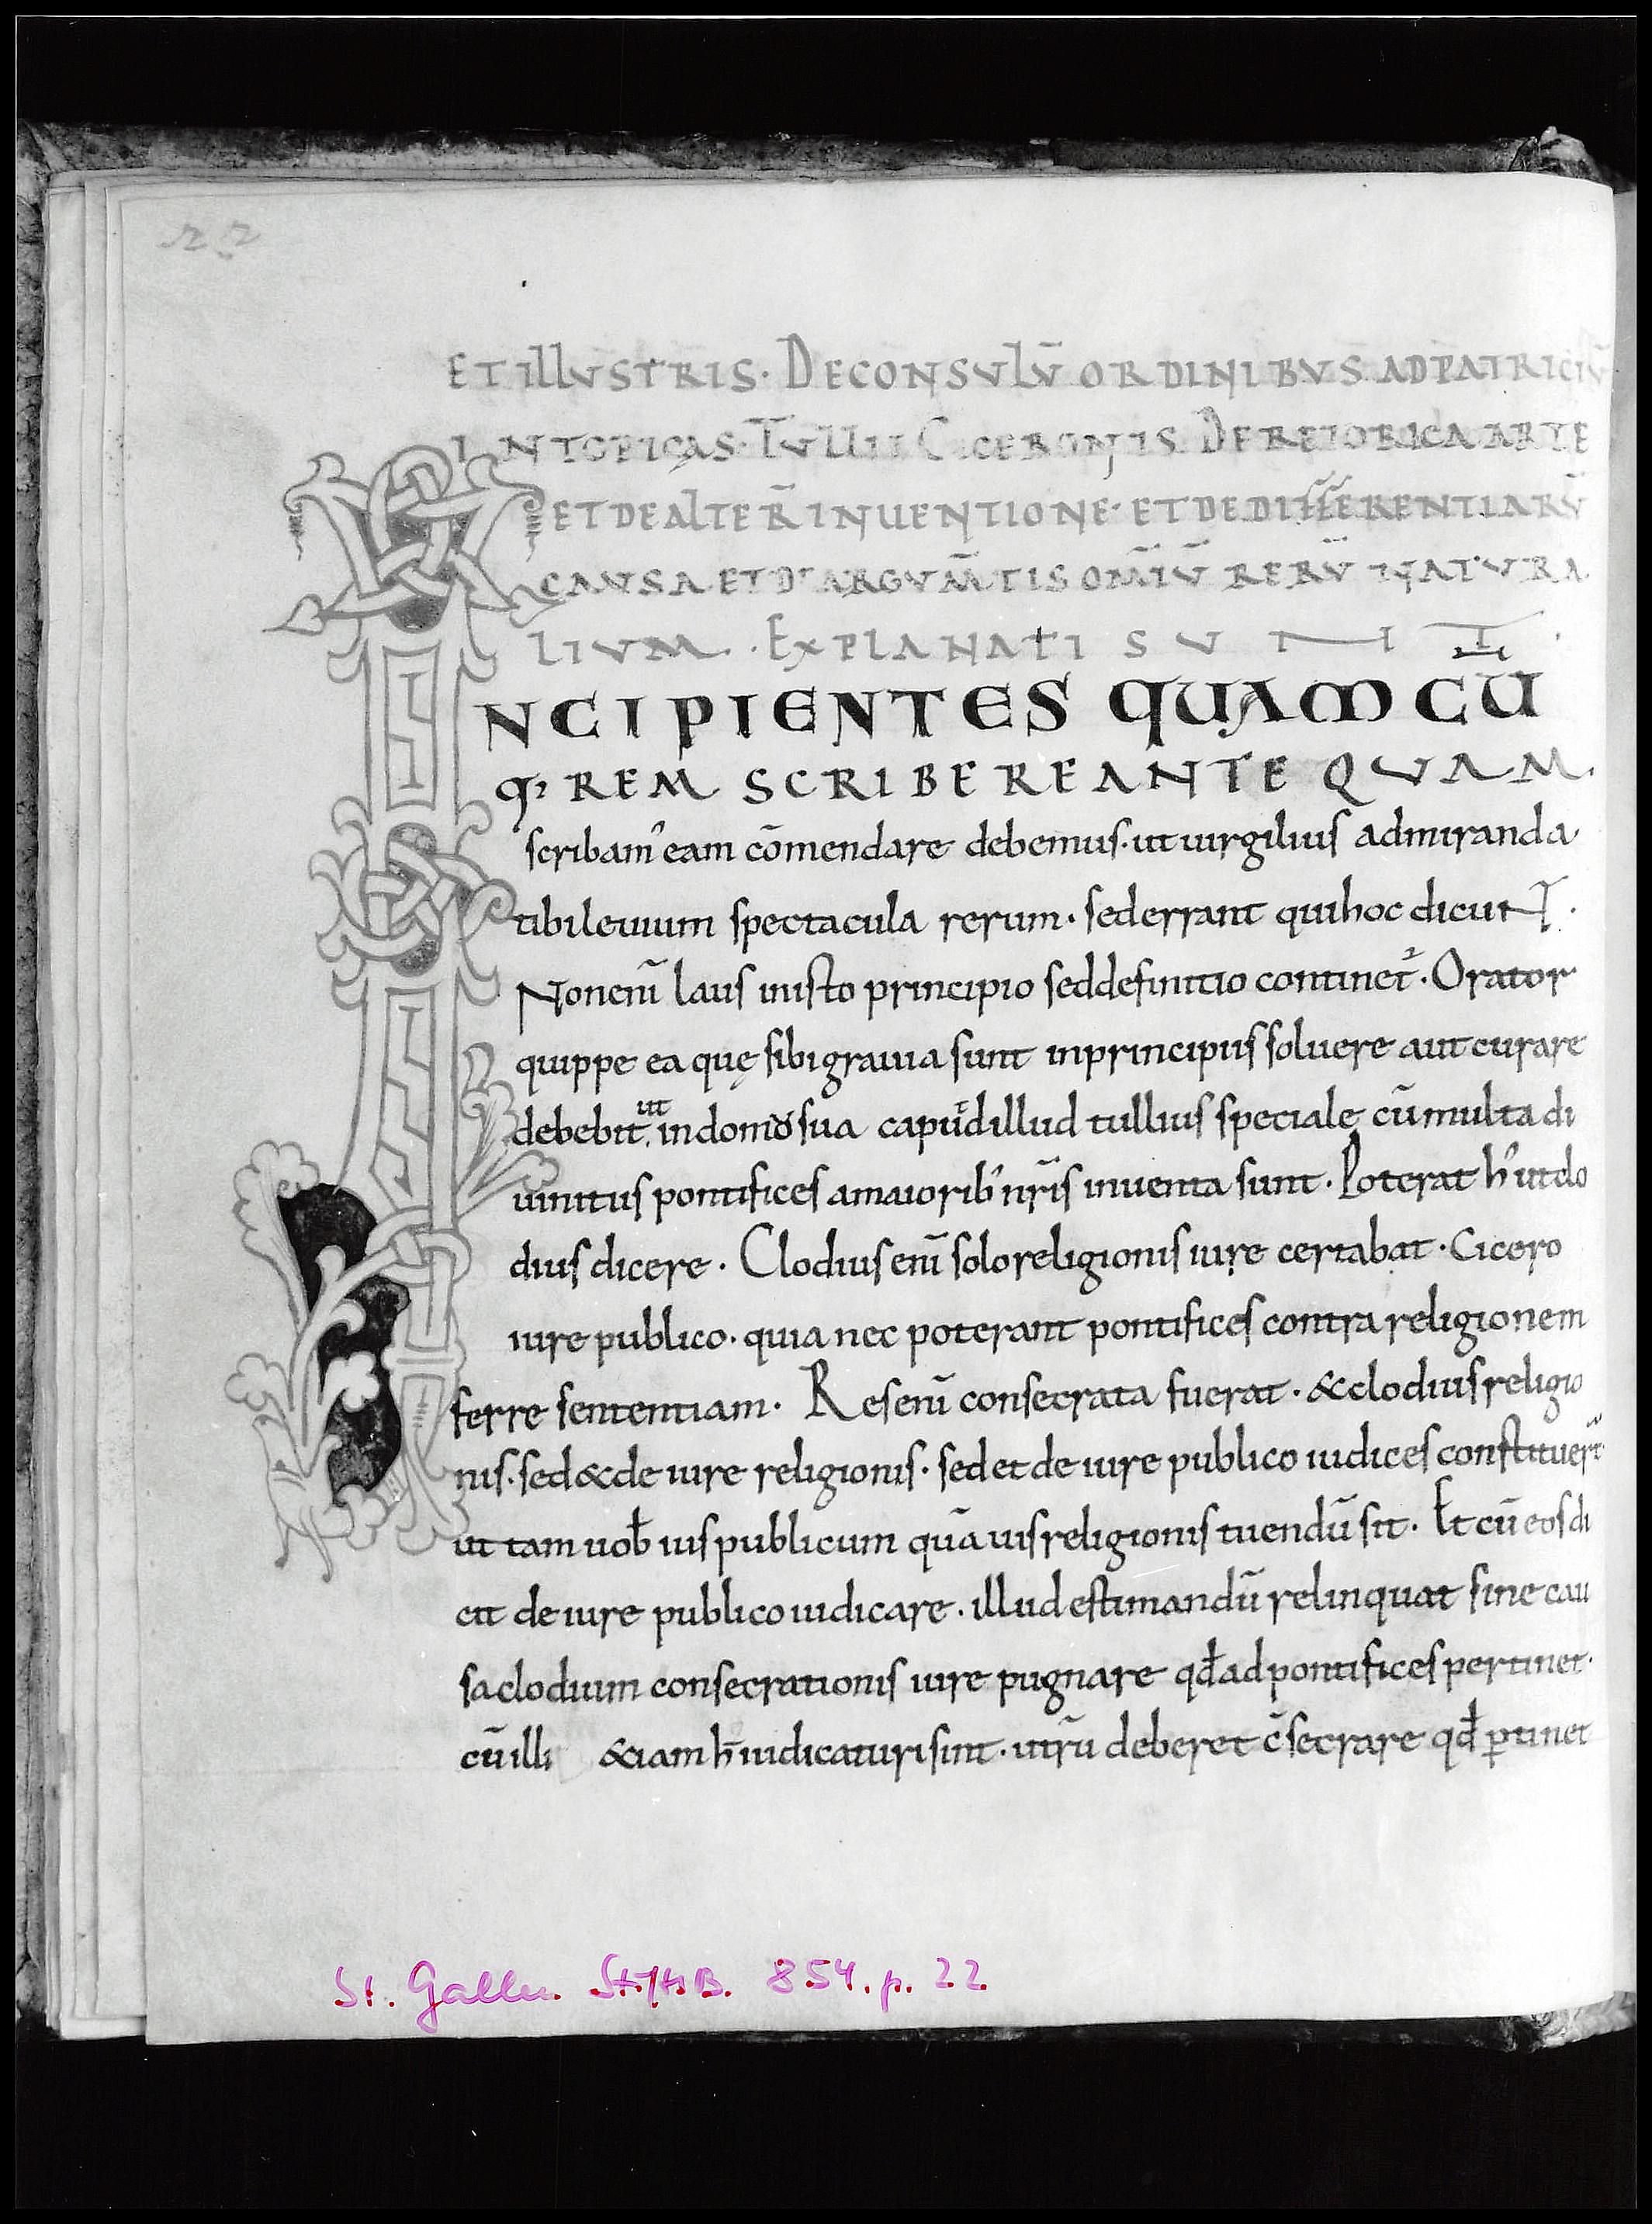 22
ETILLUSTRIS· DECONSULŪ ORDINIBUS ADPATRICIŪ
INTOPICAS· TULLII CICERONIS DERETORICAARTE
ETDEALTER̄ INUENTIONE· ETDEDIFFERENTIARŪ
CAUSA ETD' ARGUM̄TIS OM̄IŪ RERŪ NATURA
LIUM· EXPLANATI SUNT·
INCIPIENTES QUAMCŪ
Q; REM SCRIBEREANTE QUAM·
scribam' eam cōmendare debemus· ut uirgilius admiranda
tibileuium spectacula rerum· sederrant quihoc dicuNT·
Nonenī laus inisto principio seddefinitio continet᷒· Orator
quippe ea quę sibigrauia sunt inprincipiis soluere autcurare
ut
debebit, indomo sua caput̄dillud tullius speciale cūmulta di
uinitus pontifices amaiorib' nr̄is inuenta sunt· Poterat h' utclo
dius dicere· Clodius enī soloreligionis iure certabat· Cicero
iure publico· quia nec poterant pontifices contra religionem
ferre sententiam· Resenī consecrata fuerat· &clodius religio
nis· sed&de iure religionis· sed et de iure publico iudices constituer̄t
ut tam uob̄ ius publicum quā uisreligionis tuendū sit· Et cū eos di
cit de iure publico iudicare· illud estimandū relinquat sine cau
sa clodium consecrationis iure pugnare qd̄ ad pontifices pertinet·
cū illi &iam h̄ iudicaturi sint· utrū deberet c̄secrare qd̄ ꝑtinet
St. Gallen StiftsB. 854. p. 22